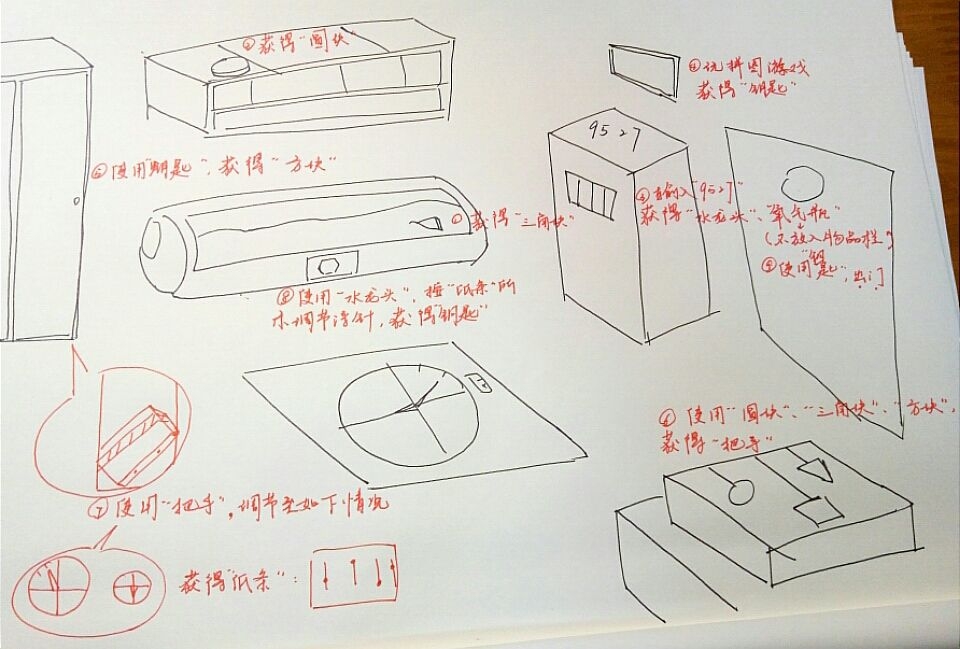 ②获得"圆块"
④玩拼图游戏
获得"钥匙"
9527
⑤使用"钥匙",获得"方块"
③输入"9527"
获得"水龙头"、"氧气瓶"
(不放入物品栏)
⑨使用"钥匙",出门
①获得"三角块"
⑧使用"水龙头",按"纸条"所
示调节浮针,获得"钥匙"
⑥使用"圆块"、"三角块"、"方块",
获得"把手"
⑦使用"把手",调节至如下情况
获得"纸条":